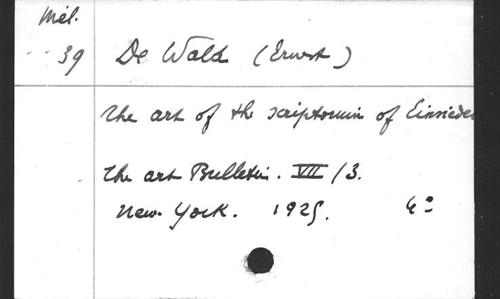 Mél.
39
De Wald (Ernst)
The art of the scriptorium of Einsiedeln
The art Bulletin. VII/3.
New-York. 1925. 4°